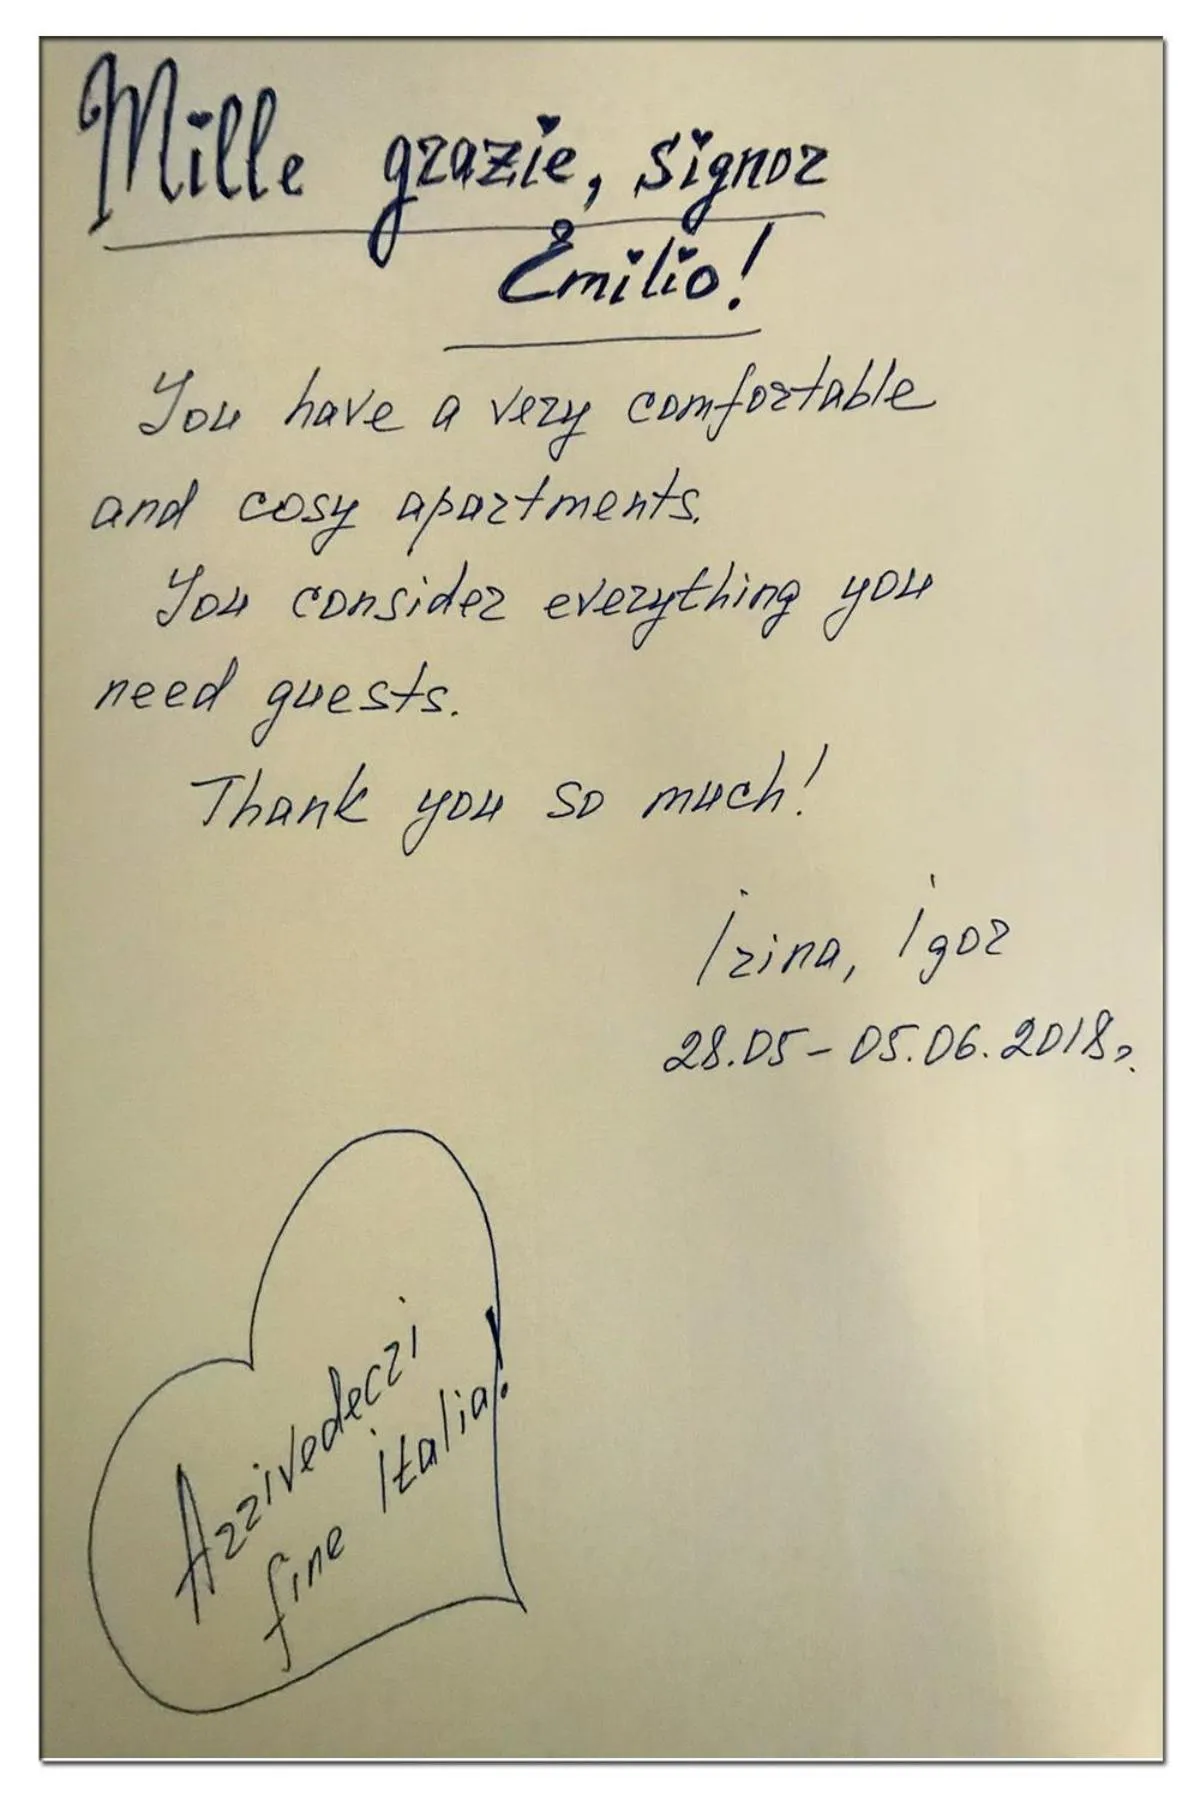 Mille grazie, signor
Emilio!
You have a very comfortable
and cosy apartments.
You consider everything you
need guests.
Thank you so much!
Irina, Igor
28.05 - 05.06.2018г.
Arrivederci
fine Italia!